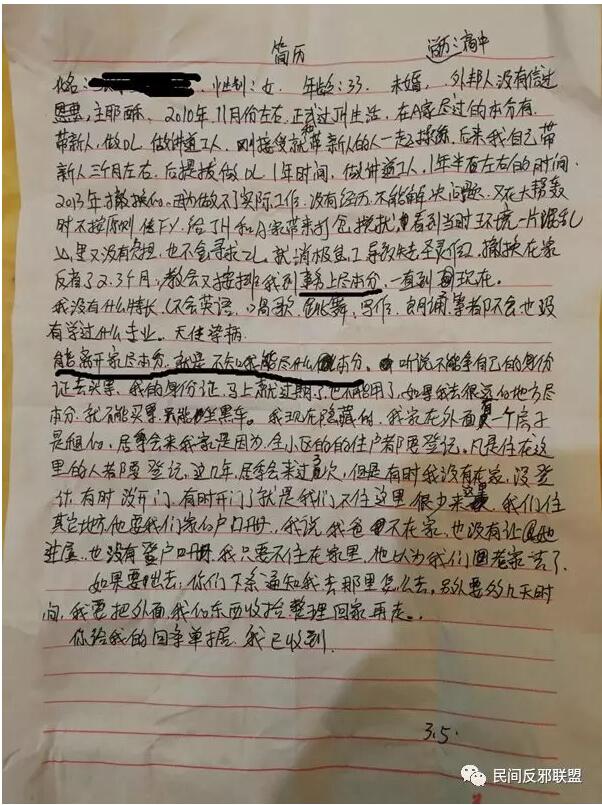 简历 学历:高中
性别:女. 年龄:33 未婚. 外邦人没有信过
恩惠,主耶稣. 2010年11月份左右.正式过JH生活.在A家尽过的本分有.
带新人,做DL,做讲道工人.刚接受就和带新人的人一起操练.后来我自己带
新人三个月左右.后提拔做DL 1年时间.做讲道工人,1年半左右的时间.
2013年撤换的.因为做不了实际工作.没有经历.不能解决问题.又在大帮轰
时不按原则传FY.给JH和A家带来打岔搅扰.看到当时环境一片混乱
心里又没有负担.也不会寻求ZL.就消极怠工导致失去圣灵作工.撤换在家
反省了2.3个月.教会又安排我到事务上尽本分一直到现在.
我没有什么特长.(不会英语.唱歌.跳舞.写作.朗诵.等都不会也没
有学过什么专业.无任学柄.
能离开家尽本分.就是不知我能尽什么本分.听说不能拿自己的身份
证去买票.我的身份证.马上就过期了也不能用了.如果我去很远的地方尽
本分.就不能买票只能坐黑车.我现在隐藏的.我家在外面有一个房子
是租的.居委会来我家是因为.全小区的的住户都要登记.凡是住在这
里的人都要登记.这几年.居委会来过3次.但是有时我没有在家.没登
记.有时没开门.有时开门了就是我们不住这里.很少来这里.我们住
其它地方他要我们家的户口册.我说我爸不在家.也没有让他
进屋.也没有登户口册.我只要不住在家里.他以为我们回老家去了.
如果要出去,你们下条通知我去那里怎么去.另外要给几天时
间.我要把外面我的东西收拾整理回家再走.
你给我的回条单据.我已收到.
3.5.
民间反邪联盟